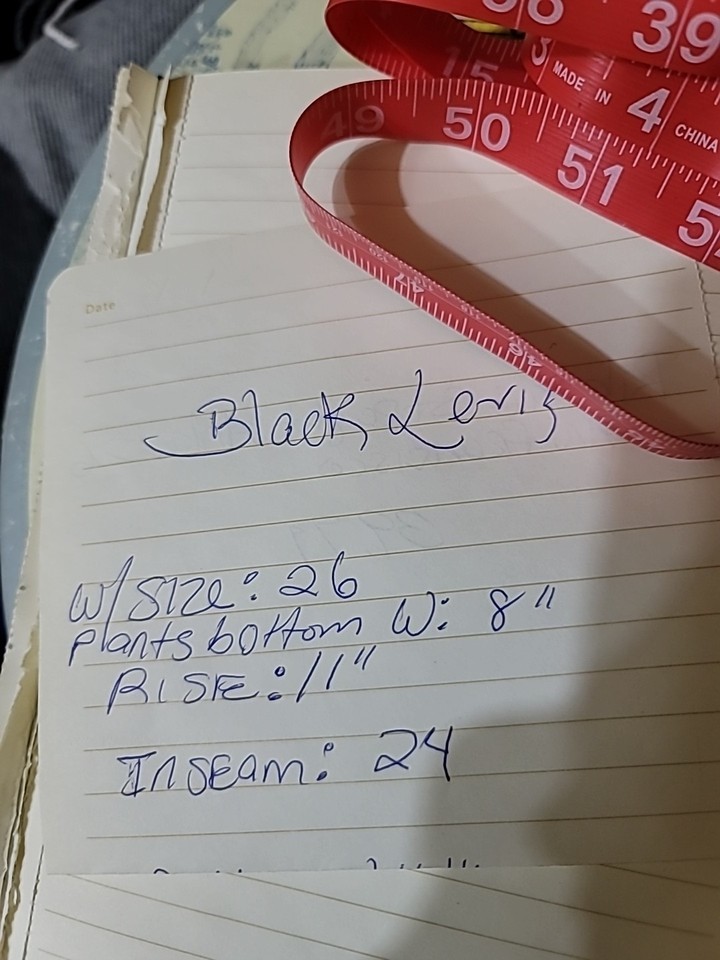 38
39
15
3
MADE IN
4
CHINA
49
50
51
5
47
46
Date
Black Levis
W/SIZE: 26
Plants bottom W: 8"
RISE: 11"
Inseam: 24